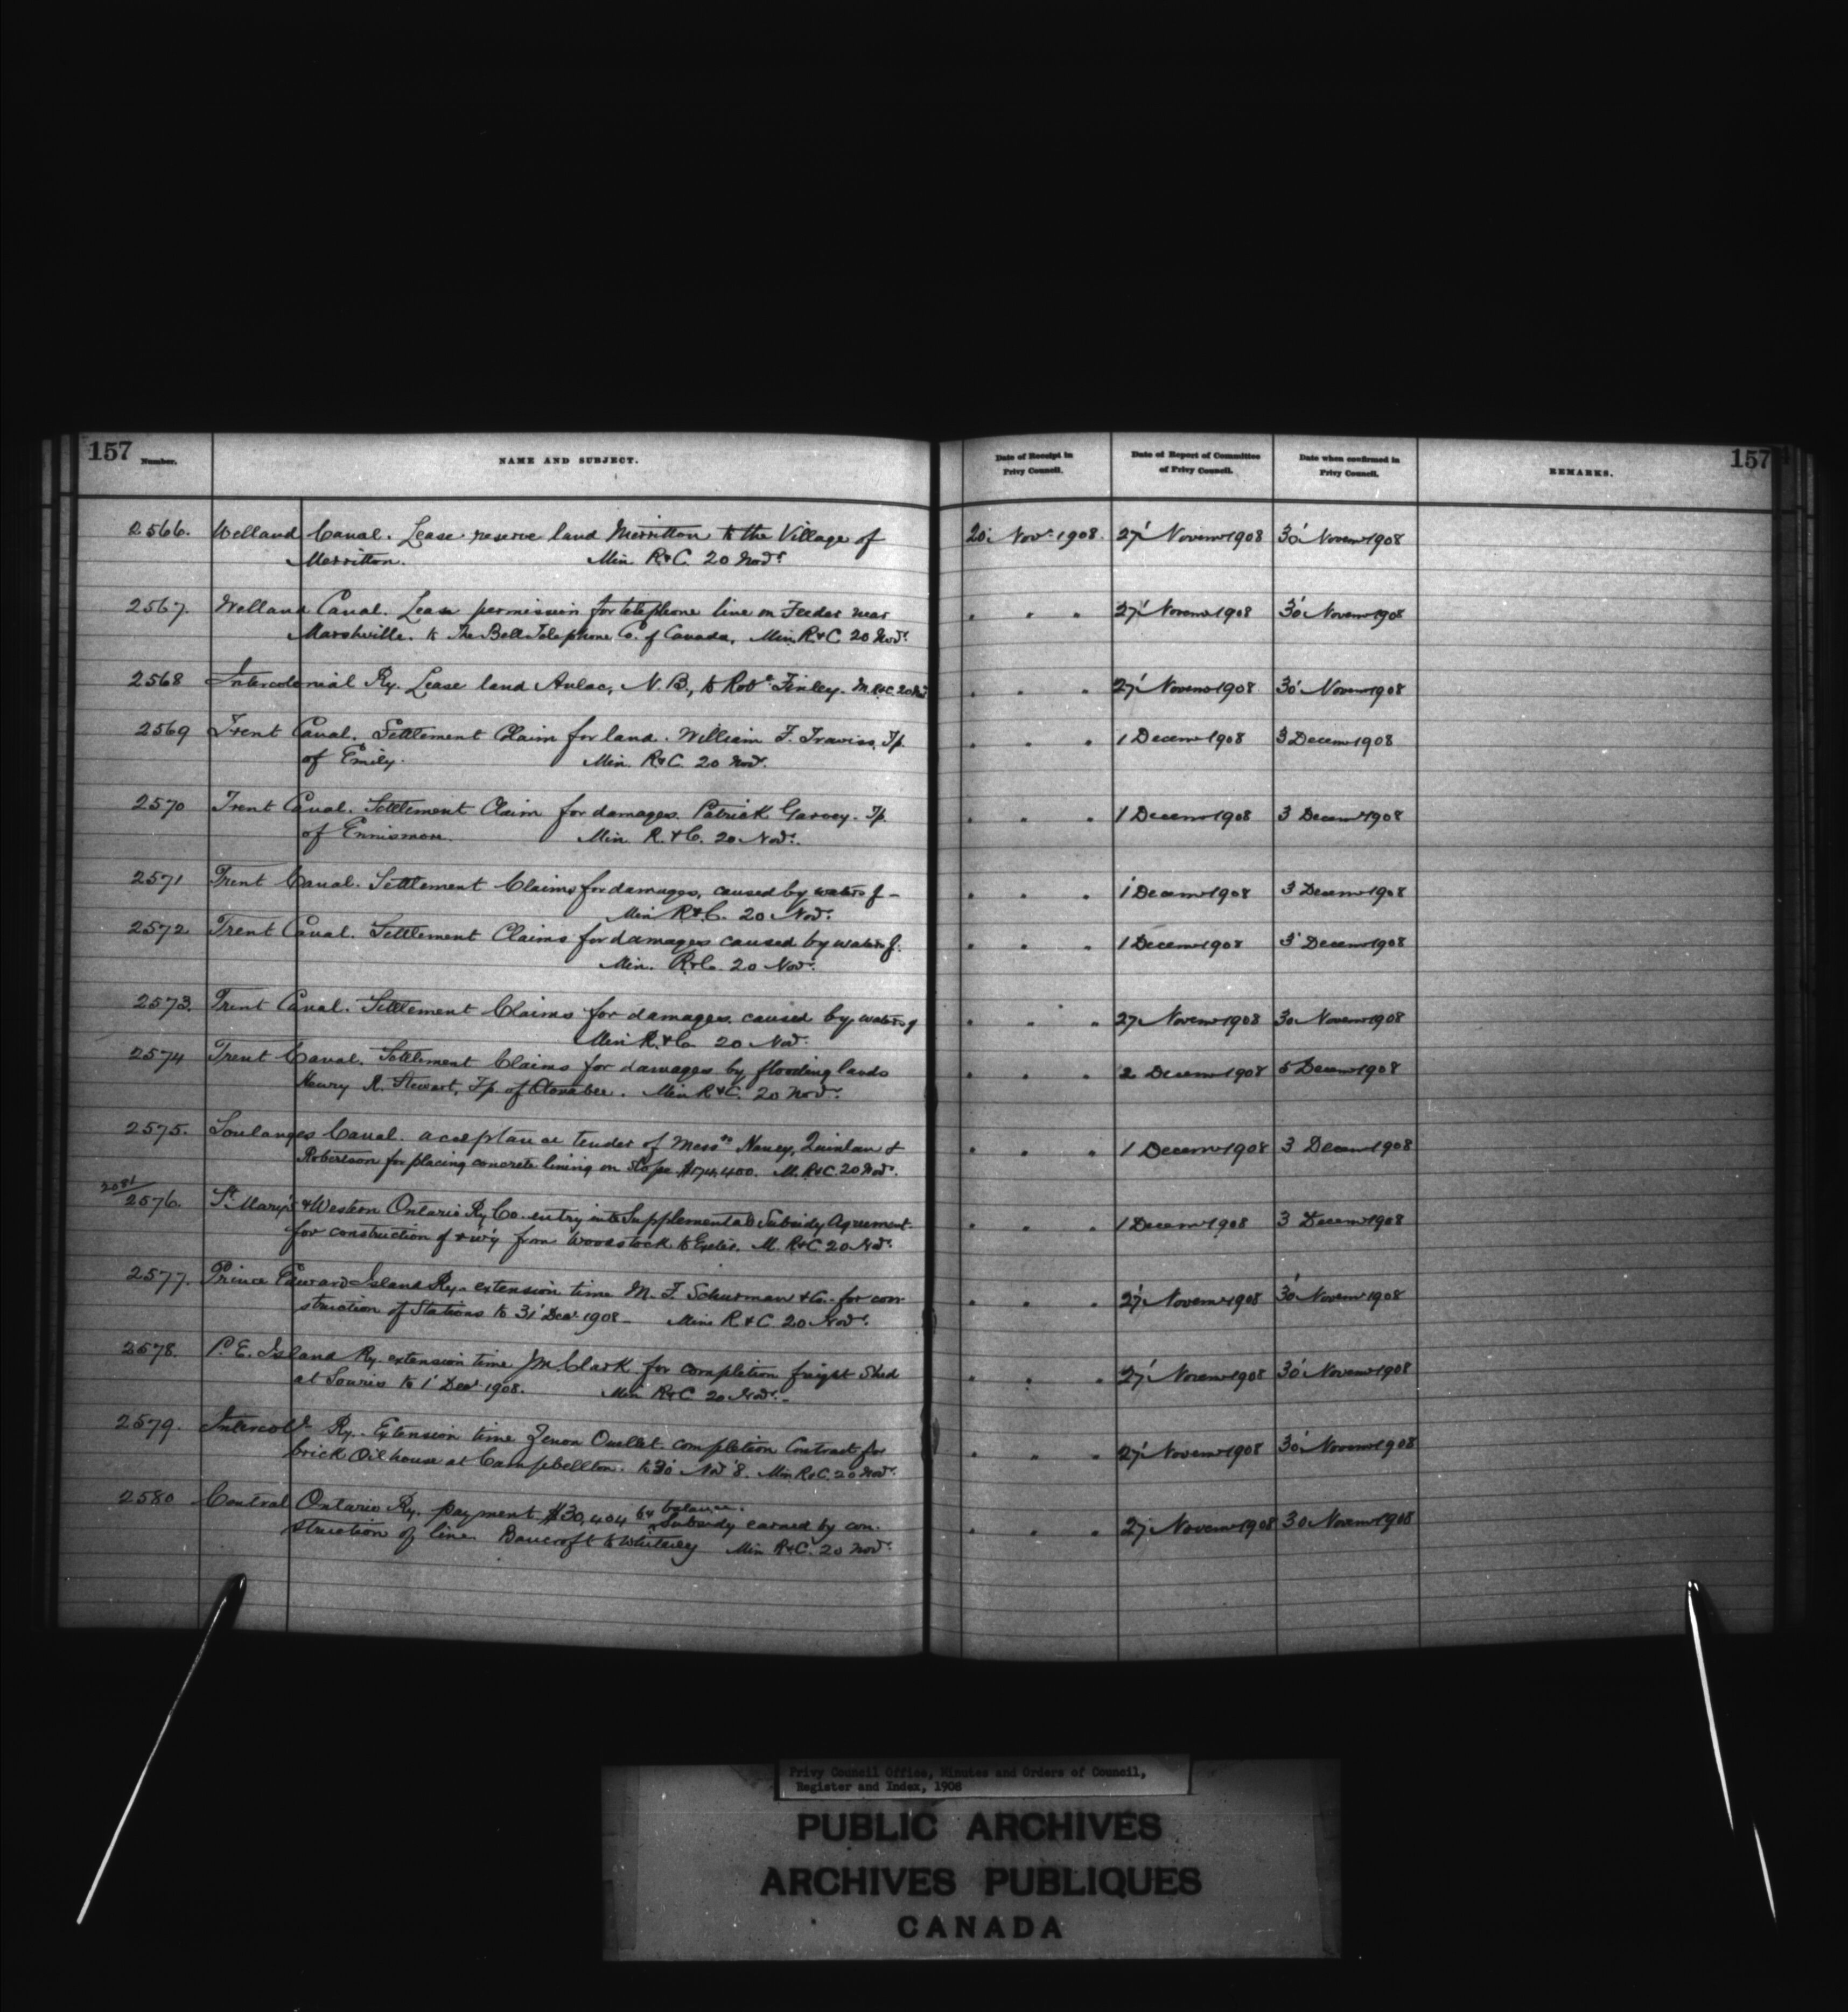 157 Number. NAME AND SUBJECT. Date of Receipt in Privy Council. Date of Report of Committee of Privy Council. Date when confirmed in Privy Council. REMARKS. 157
2566. Welland Canal. Lease reserve land Merritton to the Village of 20 Nov. 1908. 27' Novemr 1908 30' Novemr 1908
Merritton. Min. R&C. 20 Novr.
2567. Welland Canal. Lease permission for telephone line on Feeder near " " " 27' Novemr 1908 30' Novemr 1908
Marshville. to The Bell Telephone Co. of Canada. Min. R&C 20 Novr.
2568 Intercolonial Ry. Lease land Aulac, N.B., to Robt. Finley. M. R&C. 20 Novr " " " 27' Novemr 1908 30' Novemr 1908
2569 Trent Canal. Settlement Claim for land. William F. Traviss, Tp. " " " 1 Decemr 1908 3 Decemr 1908
of Emily. Min. R&C. 20 Novr.
2570 Trent Canal. Settlement Claim for damages. Patrick Garvey. Tp. " " " 1 Decemr 1908 3 Decemr 1908
of Ennismore. Min. R.&C. 20 Novr.
2571 Trent Canal. Settlement Claims for damages, caused by waters of — " " " 1' Decemr 1908 3 Decemr 1908
Min. R&C. 20 Novr.
2572 Trent Canal. Settlement Claims for damages caused by waters of. " " " 1 Decemr 1908 3' Decemr 1908
Min. R&C. 20 Novr.
2573. Trent Canal. Settlement Claims for damages caused by waters of " " " 27 Novemr 1908 30 Novemr 1908
Min R.&C. 20 Novr.
2574 Trent Canal. Settlement Claims for damages by flooding lands " " " 2 Decemr 1908 5 Decemr 1908
Henry R. Stewart, Tp. of Otonabee. Min R&C. 20 Novr.
2575. Soulanges Canal. acceptance tender of Messrs Haney, Quinlan & " " " 1 Decemr 1908 3 Decemr 1908
Robertson for placing concrete lining on Slope $174,400. M. R&C. 20 Novr.
2576. St. Mary's & Western Ontario Ry Co. entry into Supplemental Subsidy Agreement " " " 1 Decemr 1908 3 Decemr 1908
for construction of rwy from Woodstock to Exeter. M. R&C. 20 Novr.
2577. Prince Edward Island Ry. extension time M. F. Schurman & Co. for con " " " 27' Novemr 1908 30' Novemr 1908
struction of Stations to 31' Decr 1908 — Min. R&C. 20 Novr.
2578. P.E. Island Ry. extension time J.M. Clark for completion freight Shed " " " 27' Novemr 1908 30' Novemr 1908
at Souris to 1' Decr 1908. Min R&C 20 Novr. —
2579. Intercoll Ry. Extension time Zenon Ouellet completion Contract for " " " 27' Novemr 1908 30' Novemr 1908
brick Oil house at Campbellton. to 30' Nov '8. Min. R&C. 20 Novr.
2580 Central Ontario Ry. payment $30,404 64 balance Subsidy earned by con- " " " 27' Novemr 1908 30 Novemr 1908
struction of line Bancroft to Whitney Min R&C. 20 Novr.
Privy Council Office, Minutes and Orders of Council,
Register and Index, 1908
PUBLIC ARCHIVES
ARCHIVES PUBLIQUES
CANADA